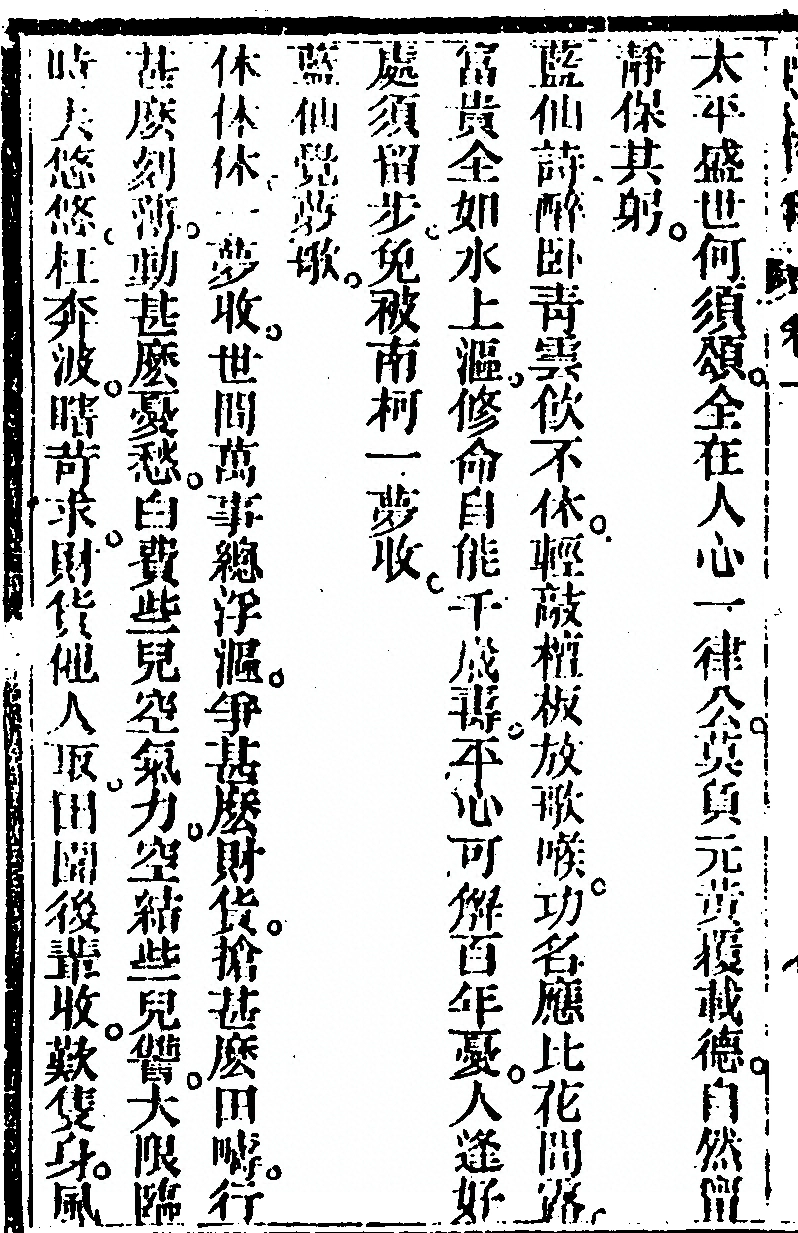 太平盛世何須頌。全在人心一律公。莫負元黄覆載德。自然留
靜保其躬。
藍仙詩醉卧青雲飲不休。輕敲檀板放歌喉。功名應比花間露。
富貴全如水上漚。修命自能千歲壽。平心可解百年憂。人逢好
處須留步。免被南柯一夢收。
藍仙覺夢歌。
休休休。一夢收。世間萬事總浮漚。爭甚麽財貨。搶甚麽田疇。行
甚麽刻薄。動甚麽憂愁。白費些兒空氣力。空結些兒讐。大限臨
時大悠悠。枉奔波。瞎苛求。財貨他人取。田園後輩收。歎隻身。風